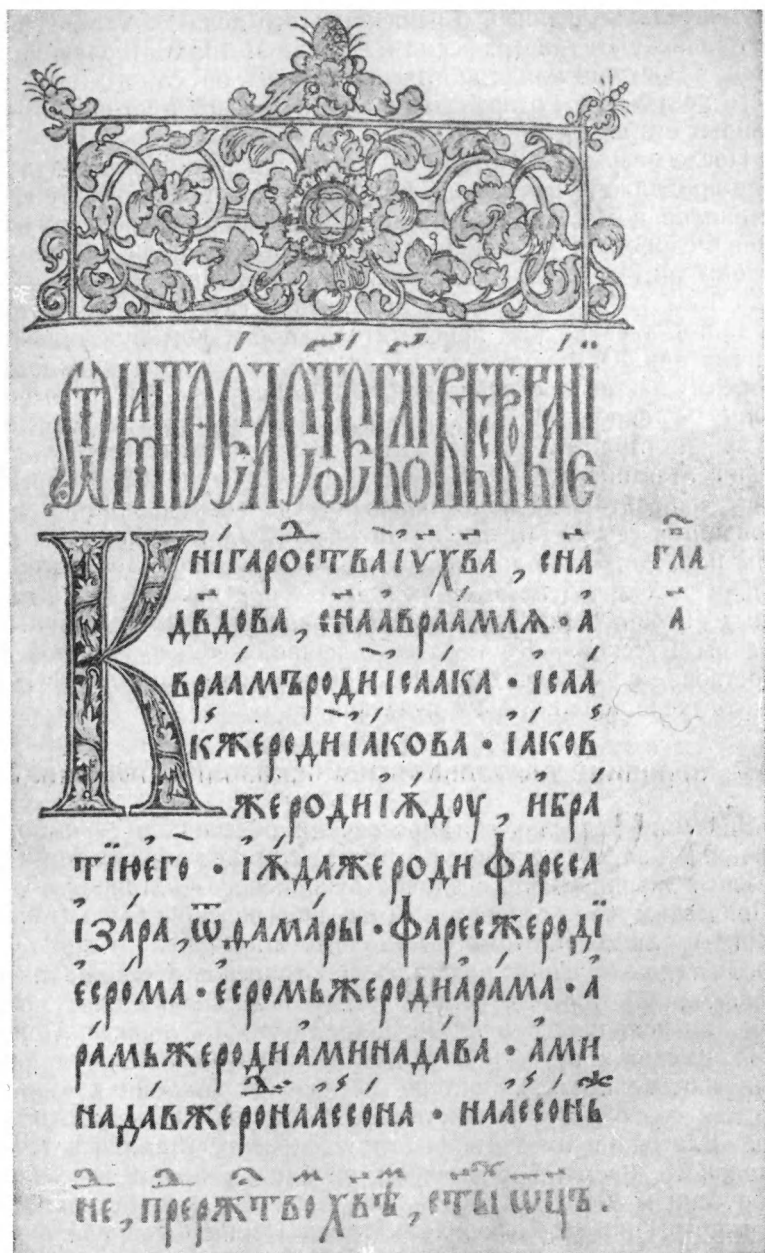 КНІГАРОⷣСТВАІѴ҃Х҃ВА , СН҃А ГЛ҃А
ДВ҃ДОВА, СН҃ААВРААМЛѦ · А А҃
ВРААМЪРОДИІСААКА · ІСАА
КЖЕРОДИІАКОВА · ІАКОВ
ЖЕРОДИІЖДОУ , ИБРА
ТЇЮЕГО · ІЖДАЖЕРОДИ ФАРЕСА
ІЗАРА , ѾДАМАРЫ · ФАРЕСЖЕРОДЇ
ЕСРОМА · ЕСРОМЬЖЕРОДИАРАМА · А
РАМЬЖЕРОДИАМИНАДАВА · АМИ
НАДАВЖЕРОⷣНААССОНА · НААССОНЬⷤ
Неⷣ, ПРЕⷣРЖⷣТВОⷨ ХВ҃Ѣⷨ, СТ҃Ыⷯ ѠЦ҃Ъ .